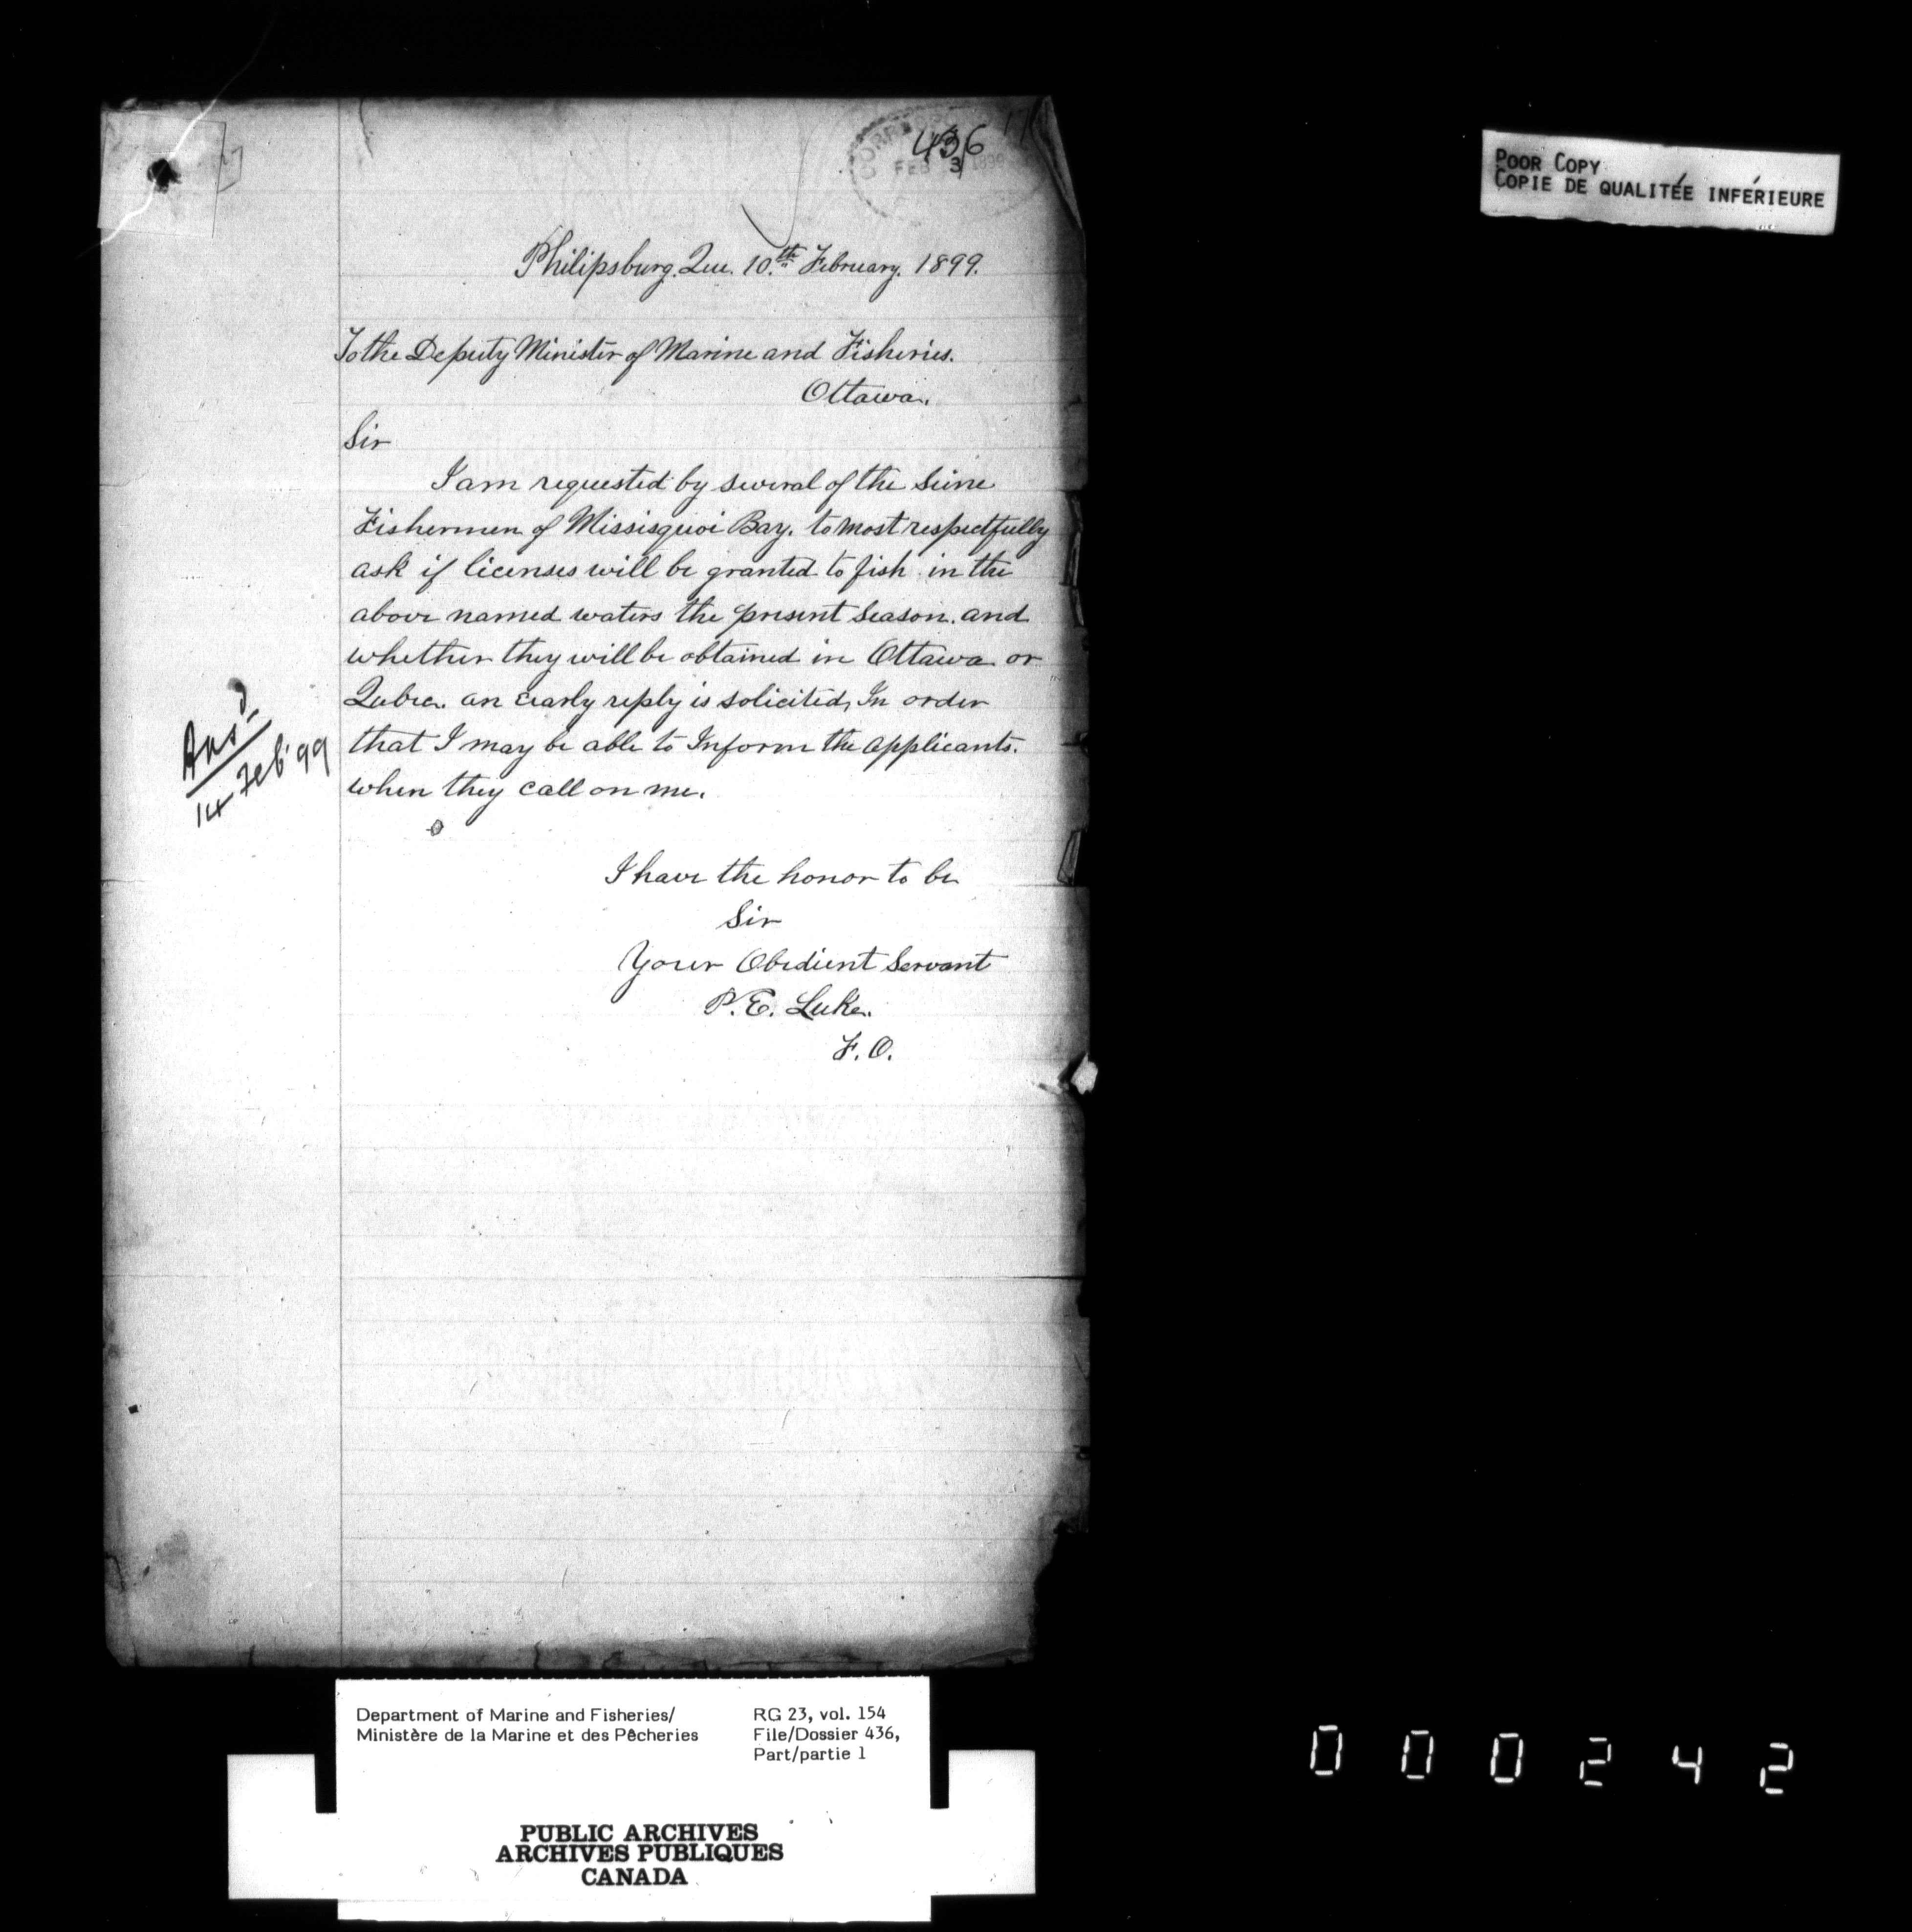 436
FEB 3 1899
POOR COPY
COPIE DE QUALITÉE INFÉRIEURE
Philipsburg. Que. 10.th February. 1899.
To the Deputy Minister of Marine and Fisheries.
Ottawa.
Sir
I am requested by several of the Seine
Fishermen of Missisquoi Bay. to most respectfully
ask if licenses will be granted to fish in the
above named waters the present Season. and
whether they will be obtained in Ottawa or
Quebec. an early reply is solicited, In order
that I may be able to Inform the applicants.
when they call on me.
Ansd
14 Feb '99
I have the honor to be
Sir
Your Obedient Servant
P. E. Luke.
F. O.
Department of Marine and Fisheries/
Ministère de la Marine et des Pêcheries
RG 23, vol. 154
File/Dossier 436,
Part/partie 1
PUBLIC ARCHIVES
ARCHIVES PUBLIQUES
CANADA
000242